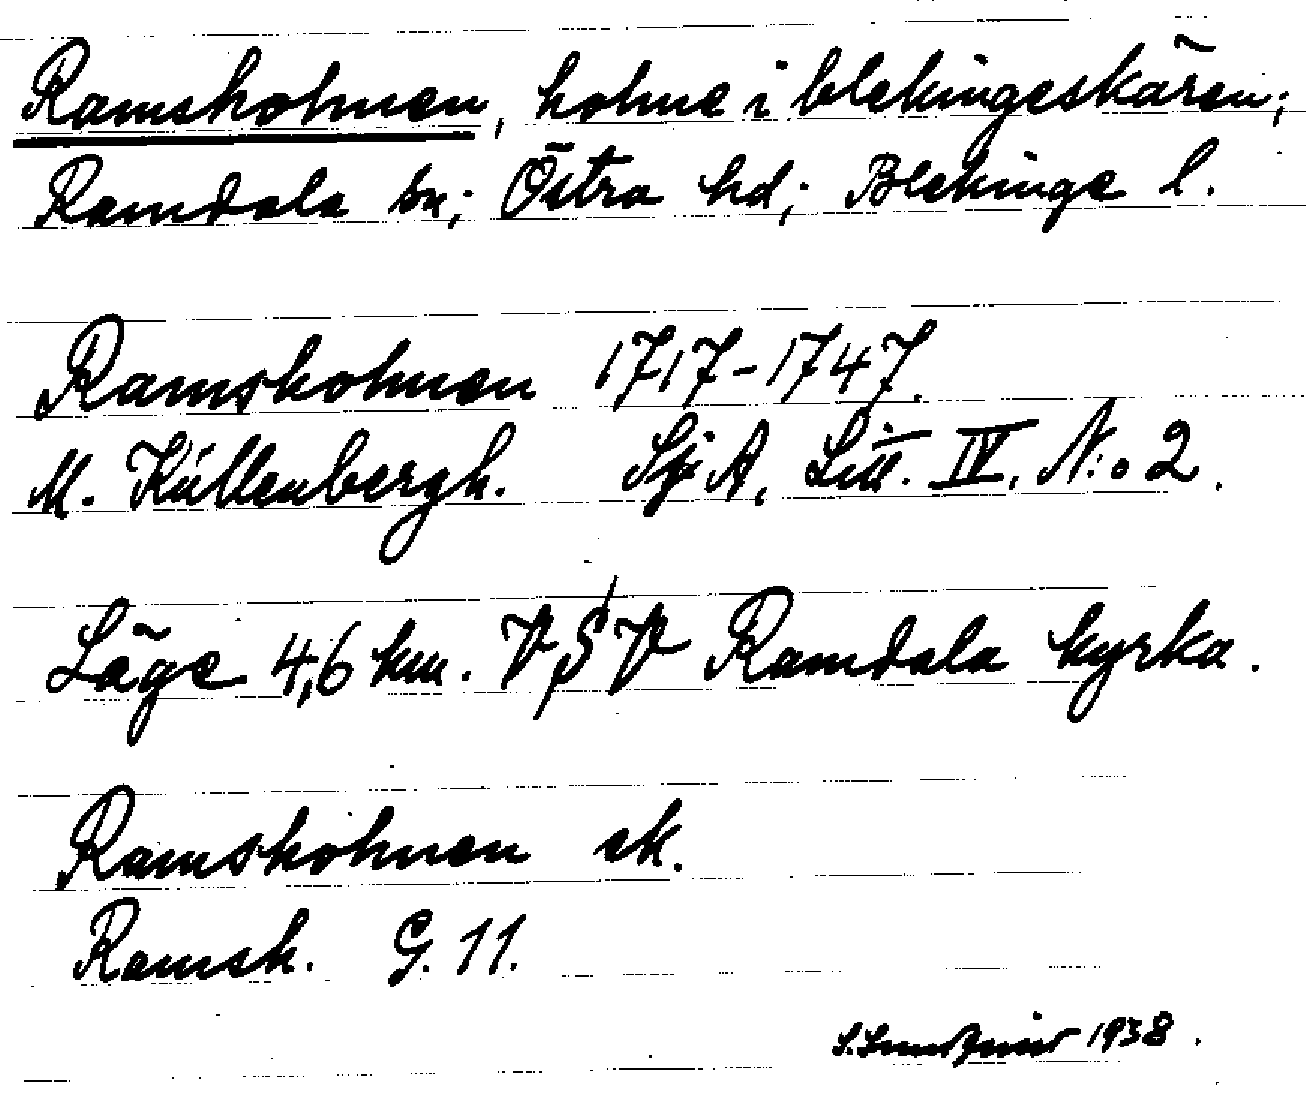 Ramsholmen, holme i blekingeskären;
Ramdala sn; Östra hd; Blekinge l.
Ramsholmen 1717-1747.
M. Küllenbergh. SjA, Litt. IV, N:o 2.
Läge 4,6 km. VSV Ramdala kyrka.
Ramsholmen ek.
Ramsh. G. 11.
1938.